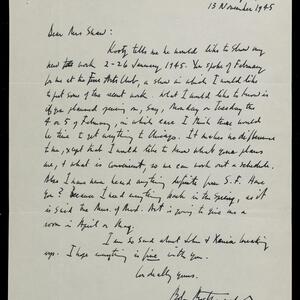 13 November 1945
Dear Mrs Shaw:
Kootz tells me he would like to show my
new work 2-26 January, 1945. You spoke of February
for me at the Arts Club, a show in which I would like
to put some of the recent work. What I would like to know is
if you planned opening on, say, Monday or Tuesday the
4 or 5 of February, in which case I think there would
be time to get anything to Chicago. It makes no difference
to me, except that I would like to know what your plans
are, & what is convenient, so we can work out a schedule.
Also I have never heard anything definite from S.F. Have
you? Because I need anything back in the spring, as it
is said the Mus. of Mod. Art is going to give me a
room in April or May.
I am so sad about John & Xenia breaking
up. I hope everything is fine with you.
Cordially yours,
Bob Motherwell